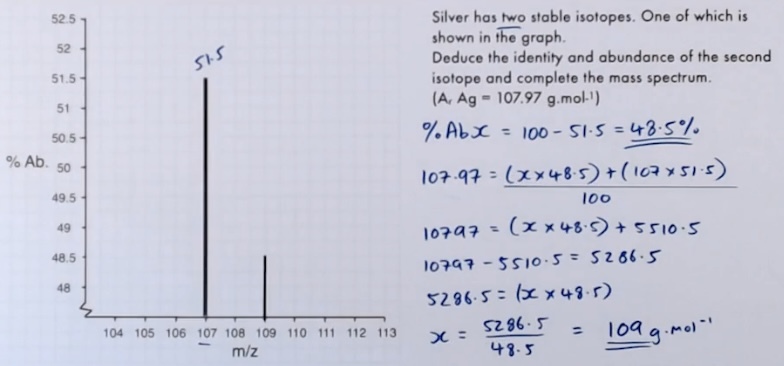 52.5
52
51.5
51
50.5
50
49.5
49
48.5
48
% Ab.
51.5
104 105 106 107 108 109 110 111 112 113
m/z
Silver has two stable isotopes. One of which is
shown in the graph.
Deduce the identity and abundance of the second
isotope and complete the mass spectrum.
(Aᵣ Ag = 107.97 g.mol-¹)
% Ab x = 100 - 51.5 = 48.5%
107.97 = (x × 48.5) + (107 × 51.5)
100
10797 = (x × 48.5) + 5510.5
10797 - 5510.5 = 5286.5
5286.5 = (x × 48.5)
x = 5286.5 = 109 g.mol⁻¹
48.5